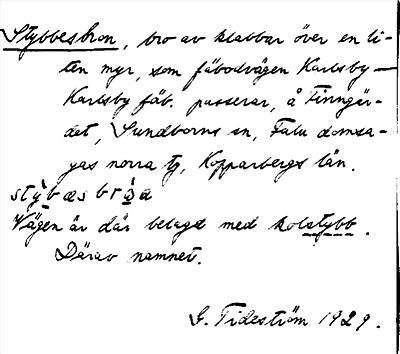 Stybbesbron, bro av klabbar över en li-
ten myr, som fäbodvägen Karlsby—
Karlsby fäb. passerar, å Finngär-
det, Sundborns sn, Falu domsa-
gas norra tg, Kopparbergs län.
Vägen är där belagd med kolstybb.
Därav namnet.
G. Tideström 1929.